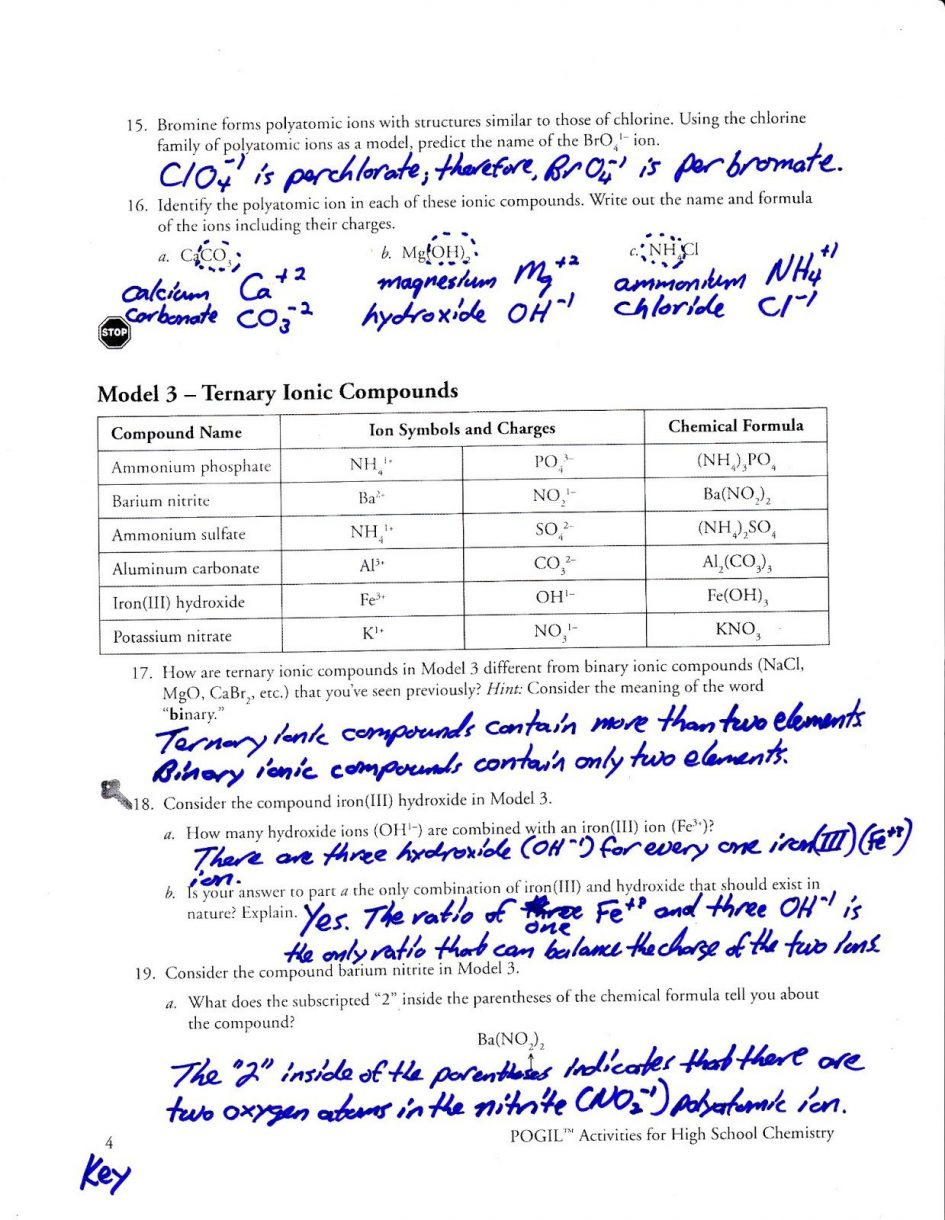 15. Bromine forms polyatomic ions with structures similar to those of chlorine. Using the chlorine
family of polyatomic ions as a model, predict the name of the BrO₄¹⁻ ion.
ClO₄⁻¹ is perchlorate; therefore, BrO₄⁻¹ is perbromate.
16. Identify the polyatomic ion in each of these ionic compounds. Write out the name and formula
of the ions including their charges.
a. CaCO₃ b. Mg(OH)₂ c. NH₄Cl
calcium Ca⁺² magnesium Mg⁺² ammonium NH₄⁺¹
Carbonate CO₃⁻² hydroxide OH⁻¹ chloride Cl⁻¹
STOP
Model 3 – Ternary Ionic Compounds
Compound Name Ion Symbols and Charges Chemical Formula
Ammonium phosphate NH₄¹⁺ PO₄³⁻ (NH₄)₃PO₄
Barium nitrite Ba²⁺ NO₂¹⁻ Ba(NO₂)₂
Ammonium sulfate NH₄¹⁺ SO₄²⁻ (NH₄)₂SO₄
Aluminum carbonate Al³⁺ CO₃²⁻ Al₂(CO₃)₃
Iron(III) hydroxide Fe³⁺ OH¹⁻ Fe(OH)₃
Potassium nitrate K¹⁺ NO₃¹⁻ KNO₃
17. How are ternary ionic compounds in Model 3 different from binary ionic compounds (NaCl,
MgO, CaBr₂, etc.) that you've seen previously? Hint: Consider the meaning of the word
"binary."
Ternary ionic compounds contain more than two elements
Binary ionic compounds contain only two elements.
18. Consider the compound iron(III) hydroxide in Model 3.
a. How many hydroxide ions (OH¹⁻) are combined with an iron(III) ion (Fe³⁺)?
There are three hydroxide (OH⁻¹) for every one iron(III) (Fe⁺³)
ion.
b. Is your answer to part a the only combination of iron(III) and hydroxide that should exist in
nature? Explain. Yes. The ratio of one Fe⁺³ and three OH⁻¹ is
the only ratio that can balance the charge of the two ions.
19. Consider the compound barium nitrite in Model 3.
a. What does the subscripted "2" inside the parentheses of the chemical formula tell you about
the compound?
Ba(NO₂)₂
The "2" inside of the parentheses indicates that there are
two oxygen atoms in the nitrite (NO₂⁻¹) polyatomic ion.
4 POGIL™ Activities for High School Chemistry
Key